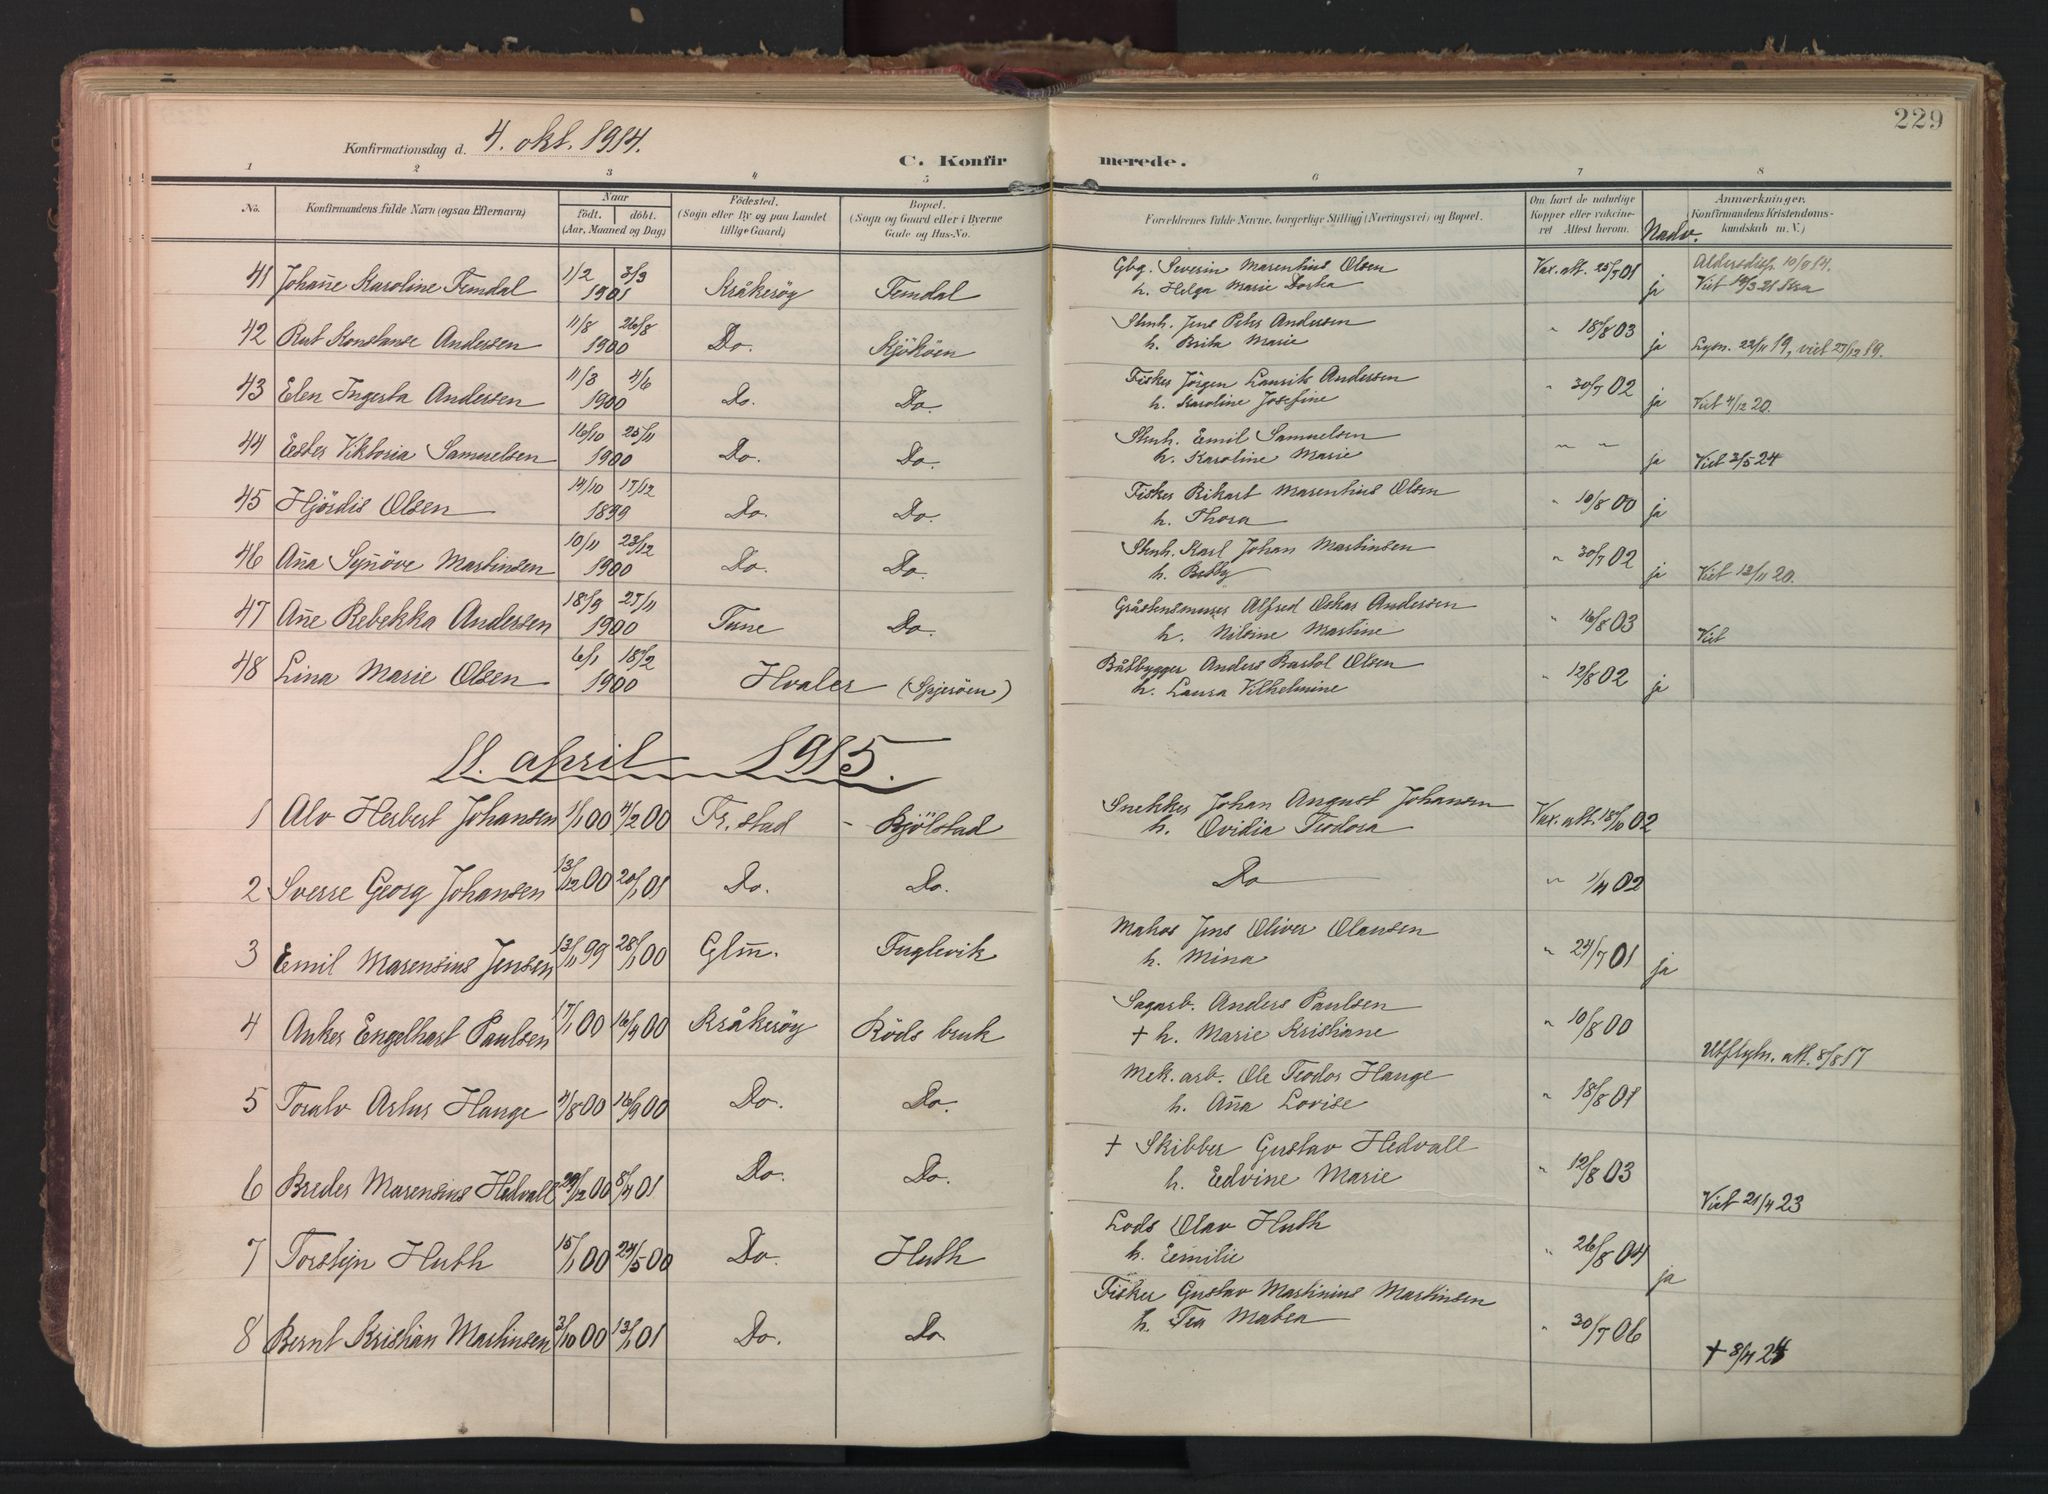 229
Konfirmationsdag d. 4. okt. 1914.
C. Konfirmerede.
1 2 3 4 5 6 7 8
No.
Konfirmandens fulde Navn (ogsaa Efternavn)
Naar
födt. döbt.
(Aar, Maaned og Dag)
Födested.
(Sogn eller By og paa Landet
tillige Gaard)
Bopæl.
(Sogn og Gaard eller i Byerne
Gade og Hus-No.
Forældrenes fulde Navne, borgerlige Stilling (Næringsvei) og Bopæl.
Om havt de naturlige
Kopper eller vakcine-
ret Attest herom.
Nadv.
Anmærkninger.
Konfirmandens Kristendoms-
kundskab m. V.)
41 Johan̄e Karoline Femdal 1/2 3/3 1901 Kråkeröy Femdal Gbg. Severin Marentius Olsen Vax. att. 25/7 01 ja Aldersdisp. 10/9 14.
h. Helga Marie Dortea Viet 19/3 21
42 Rut Konstanse Andersen 11/8 26/8 1900 Do. Kjököen Stnh. Jens Peter Andersen " 18/8 03 ja Lysn. 22/11 19, viet 27/12 19.
h. Brita Marie
43 Elen Ingerta Andersen 11/3 4/6 1900 Do. Do. Fisker Jörgen Laurits Andersen " 30/7 02 ja Viet 4/12 20.
h. Karoline Josefine
44 Ester Viktoria Samuelsen 16/10 25/11 1900 Do. Do. Stnh. Emil Samuelsen " " ja Viet 3/5 24
h. Karoline Marie
45 Hjördis Olsen 14/10 17/12 1899 Do. Do. Fisker Rikart Marentius Olsen " 10/8 00 ja
h. Thora
46 An̄a Syn̄öve Martinsen 10/11 23/12 1900 Do. Do. Stnh. Karl Johan Martinsen " 30/7 02 ja Viet 13/11 20.
h. Betty
47 An̄e Rebekka Andersen 18/9 27/11 1900 Tune Do. Gråstensmurer Alfred Oskar Andersen " 16/8 03 Viet
h. Nilsine Martine
48 Lina Marie Olsen 6/1 18/2 1900 Hvaler (Spjeröen) Båtbygger Anders Bartol Olsen " 12/8 02 ja
h. Laura Vilhelmine
11. april 1915.
1 Alv Herbert Johansen 1/1 00 4/2 00 Fr.stad - Kjölstad Snekker Johan August Johansen Vax. att. 18/10 02
h. Ovidia Teodora
2 Sverre Georg Johansen 13/12 00 20/1 01 Do. Do. Do " 1/4 02
3 Emil Marensius Jensen 13/11 99 28/1 00 Glm̄. Fuglevik Matros Jens Oliver Olausen " 24/7 01 ja
h. Mina
4 Anker Engelhart Paulsen 17/1 00 16/4 00 Kråkeröy Röds bruk Sagarb. Anders Paulsen " 10/8 00 Utflytn. att. 8/8 17
† h. Marie Kristiane
5 Toralv Artur Hauge 4/8 00 16/9 00 Do. Do. Mek. arb. Ole Teodor Hauge " 18/8 01
h. An̄a Lovise
6 Breder Marensius Hedvall 29/12 00 8/4 01 Do. Do. † Skibber Gustav Hedvall " 12/8 03 Viet 21/4 23
h. Edvine Marie
7 Torstejn Huth 15/1 00 24/5 00 Do. Huth Lods Olav Huth " 26/8 04 ja
h. Emilie
8 Bernt Kristian Martinsen 3/10 00 13/1 01 Do. Do Fisker Gustav Martinius Martinsen " 30/7 06 † 8/4 24
h. Tea Matea